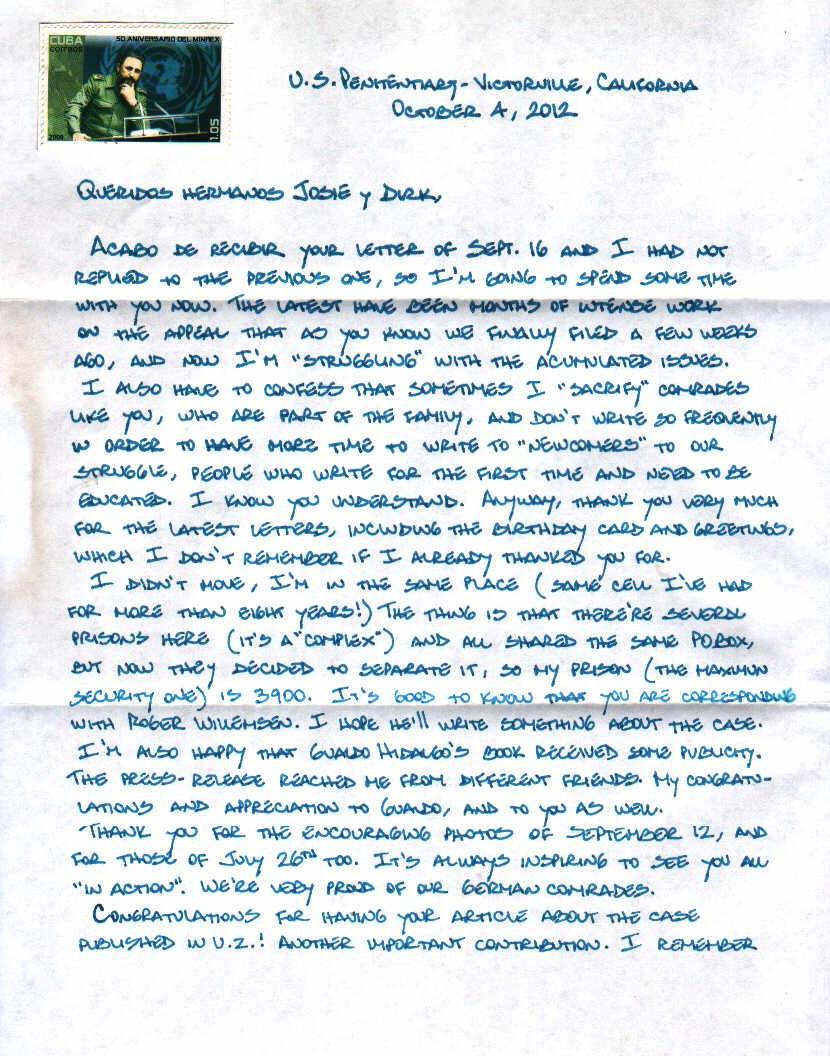 CUBA
CORREOS
50 ANIVERSARIO DEL MINREX
2009
1.05
U.S. PENITENTIARY - VICTORVILLE, CALIFORNIA
OCTOBER 4, 2012
QUERIDOS HERMANOS JOSIE Y DIRK,
ACABO DE RECIBIR YOUR LETTER OF SEPT. 16 AND I HAD NOT
REPLIED TO THE PREVIOUS ONE, SO I'M GOING TO SPEND SOME TIME
WITH YOU NOW. THE LATEST HAVE BEEN MONTHS OF INTENSE WORK
ON THE APPEAL THAT AS YOU KNOW WE FINALLY FILED A FEW WEEKS
AGO, AND NOW I'M "STRUGGLING" WITH THE ACUMULATED ISSUES.
I ALSO HAVE TO CONFESS THAT SOMETIMES I "SACRIFY" COMRADES
LIKE YOU, WHO ARE PART OF THE FAMILY, AND DON'T WRITE SO FREQUENTLY
IN ORDER TO HAVE MORE TIME TO WRITE TO "NEWCOMERS" TO OUR
STRUGGLE, PEOPLE WHO WRITE FOR THE FIRST TIME AND NEED TO BE
EDUCATED. I KNOW YOU UNDERSTAND. ANYWAY, THANK YOU VERY MUCH
FOR THE LATEST LETTERS, INCLUDING THE BIRTHDAY CARD AND GREETINGS,
WHICH I DON'T REMEMBER IF I ALREADY THANKED YOU FOR.
I DIDN'T MOVE, I'M IN THE SAME PLACE (SAME CELL I'VE HAD
FOR MORE THAN EIGHT YEARS!) THE THING IS THAT THERE'RE SEVERAL
PRISONS HERE (IT'S A "COMPLEX") AND ALL SHARED THE SAME PO BOX,
BUT NOW THEY DECIDED TO SEPARATE IT, SO MY PRISON (THE MAXIMUN
SECURITY ONE) IS 3900. IT'S GOOD TO KNOW THAT YOU ARE CORRESPONDING
WITH ROGER WILLEMSEN. I HOPE HE'LL WRITE SOMETHING ABOUT THE CASE.
I'M ALSO HAPPY THAT GUALDO HIDALGO'S BOOK RECEIVED SOME PUBLICITY.
THE PRESS-RELEASE REACHED ME FROM DIFFERENT FRIENDS. MY CONGRATU-
LATIONS AND APPRECIATION TO GUALDO, AND TO YOU AS WELL.
THANK YOU FOR THE ENCOURAGING PHOTOS OF SEPTEMBER 12, AND
FOR THOSE OF JULY 26TH TOO. IT'S ALWAYS INSPIRING TO SEE YOU ALL
"IN ACTION". WE'RE VERY PROUD OF OUR GERMAN COMRADES.
CONGRATULATIONS FOR HAVING YOUR ARTICLE ABOUT THE CASE
PUBLISHED IN U.Z.! ANOTHER IMPORTANT CONTRIBUTION. I REMEMBER